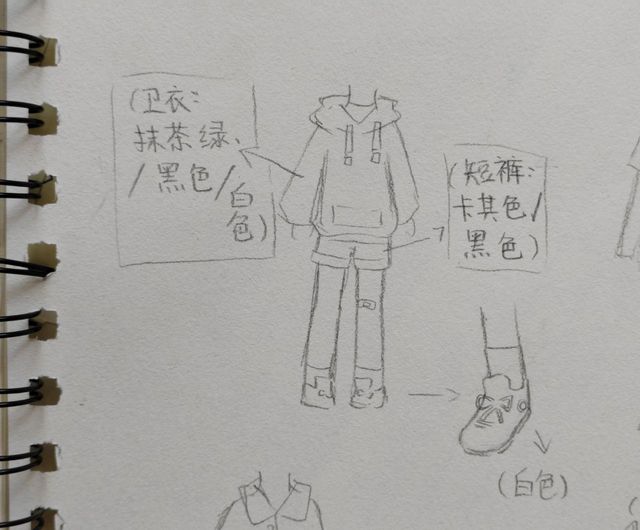 (卫衣:
抹茶绿、
/黑色/白
色)
(短裤:
卡其色/
黑色)
(白色)